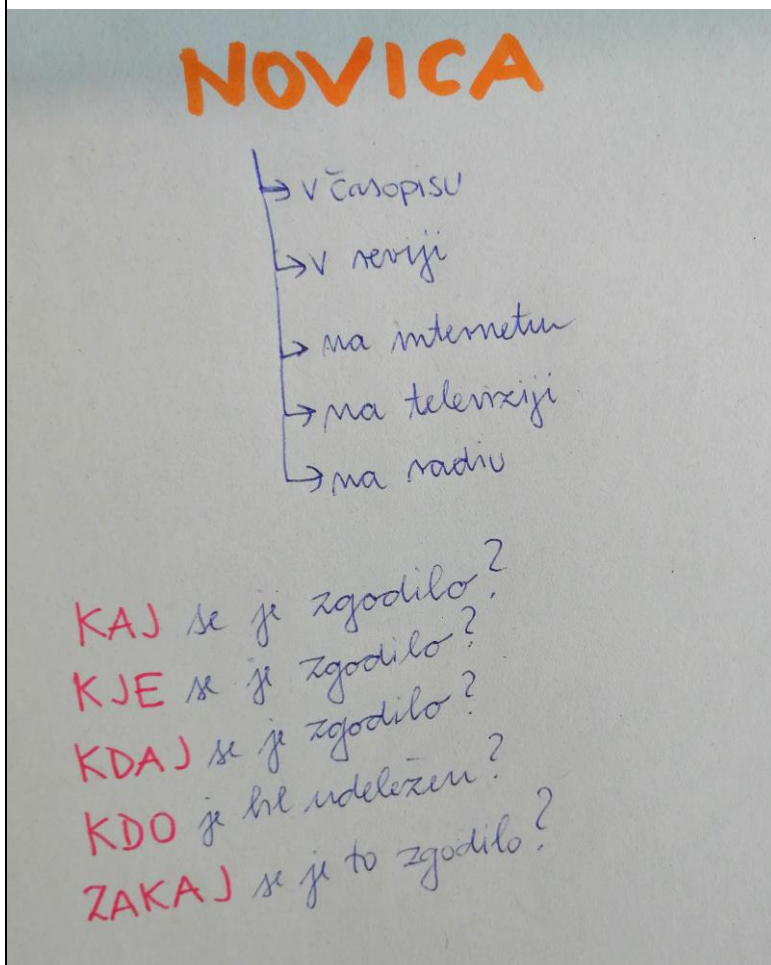 NOVICA
→ v časopisu
→ v reviji
→ na internetu
→ na televiziji
→ na radiu
KAJ se je zgodilo?
KJE se je zgodilo?
KDAJ se je zgodilo?
KDO je bil udeležen?
ZAKAJ se je to zgodilo?